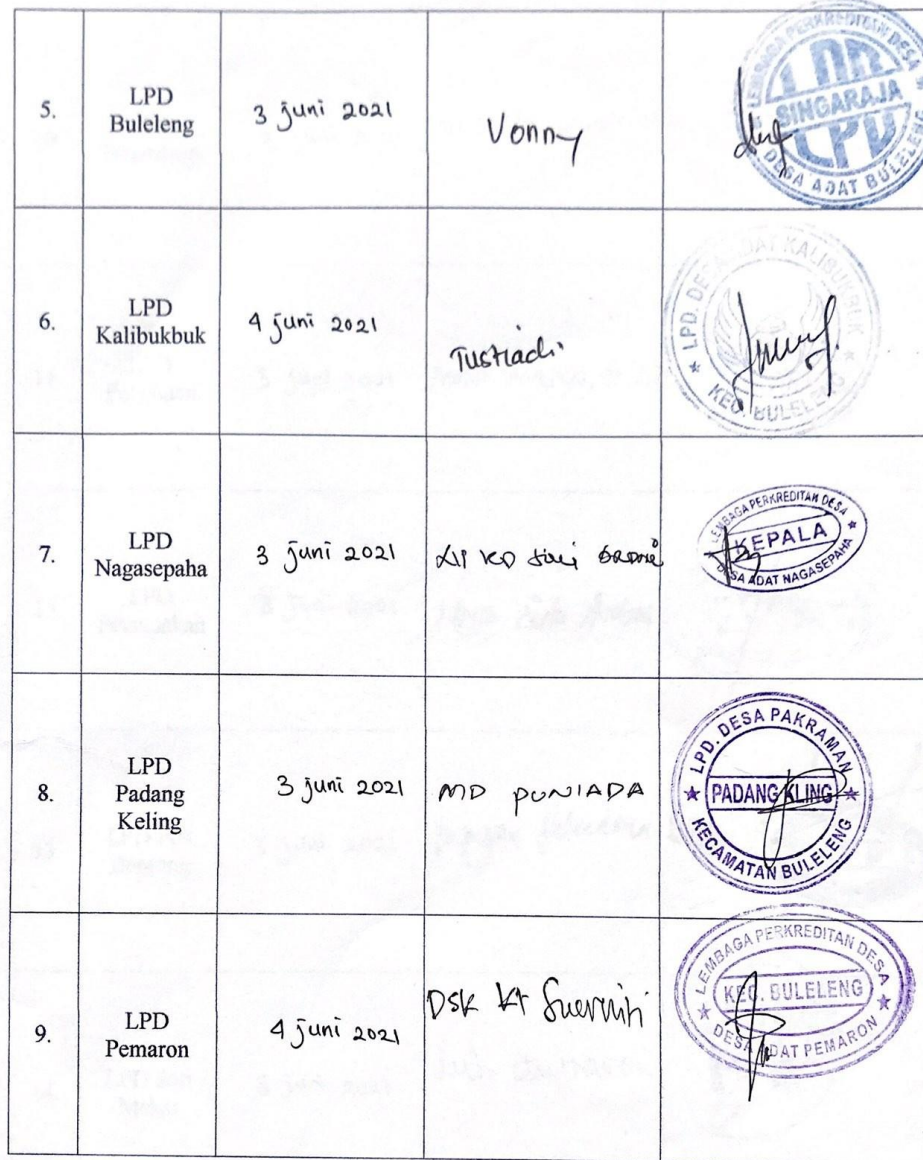 5.
LPD
Buleleng
3 juni 2021
Vonny
LEMBAGA PERKREDITAN DESA
SINGARAJA
LPD
DESA ADAT BULELENG
6.
LPD
Kalibukbuk
4 juni 2021
Tustiadi
LPD. DESA ADAT KALIBUKBUK
KEC. BULELENG
7.
LPD
Nagasepaha
3 juni 2021
KD
LEMBAGA PERKREDITAN DESA
KEPALA
DESA ADAT NAGASEPAHA
8.
LPD
Padang
Keling
3 juni 2021
MD PUNIADA
LPD. DESA PAKRAMAN
PADANG KLING
KECAMATAN BULELENG
9.
LPD
Pemaron
4 juni 2021
DSK KT
LEMBAGA PERKREDITAN DESA
KEC. BULELENG
DESA ADAT PEMARON